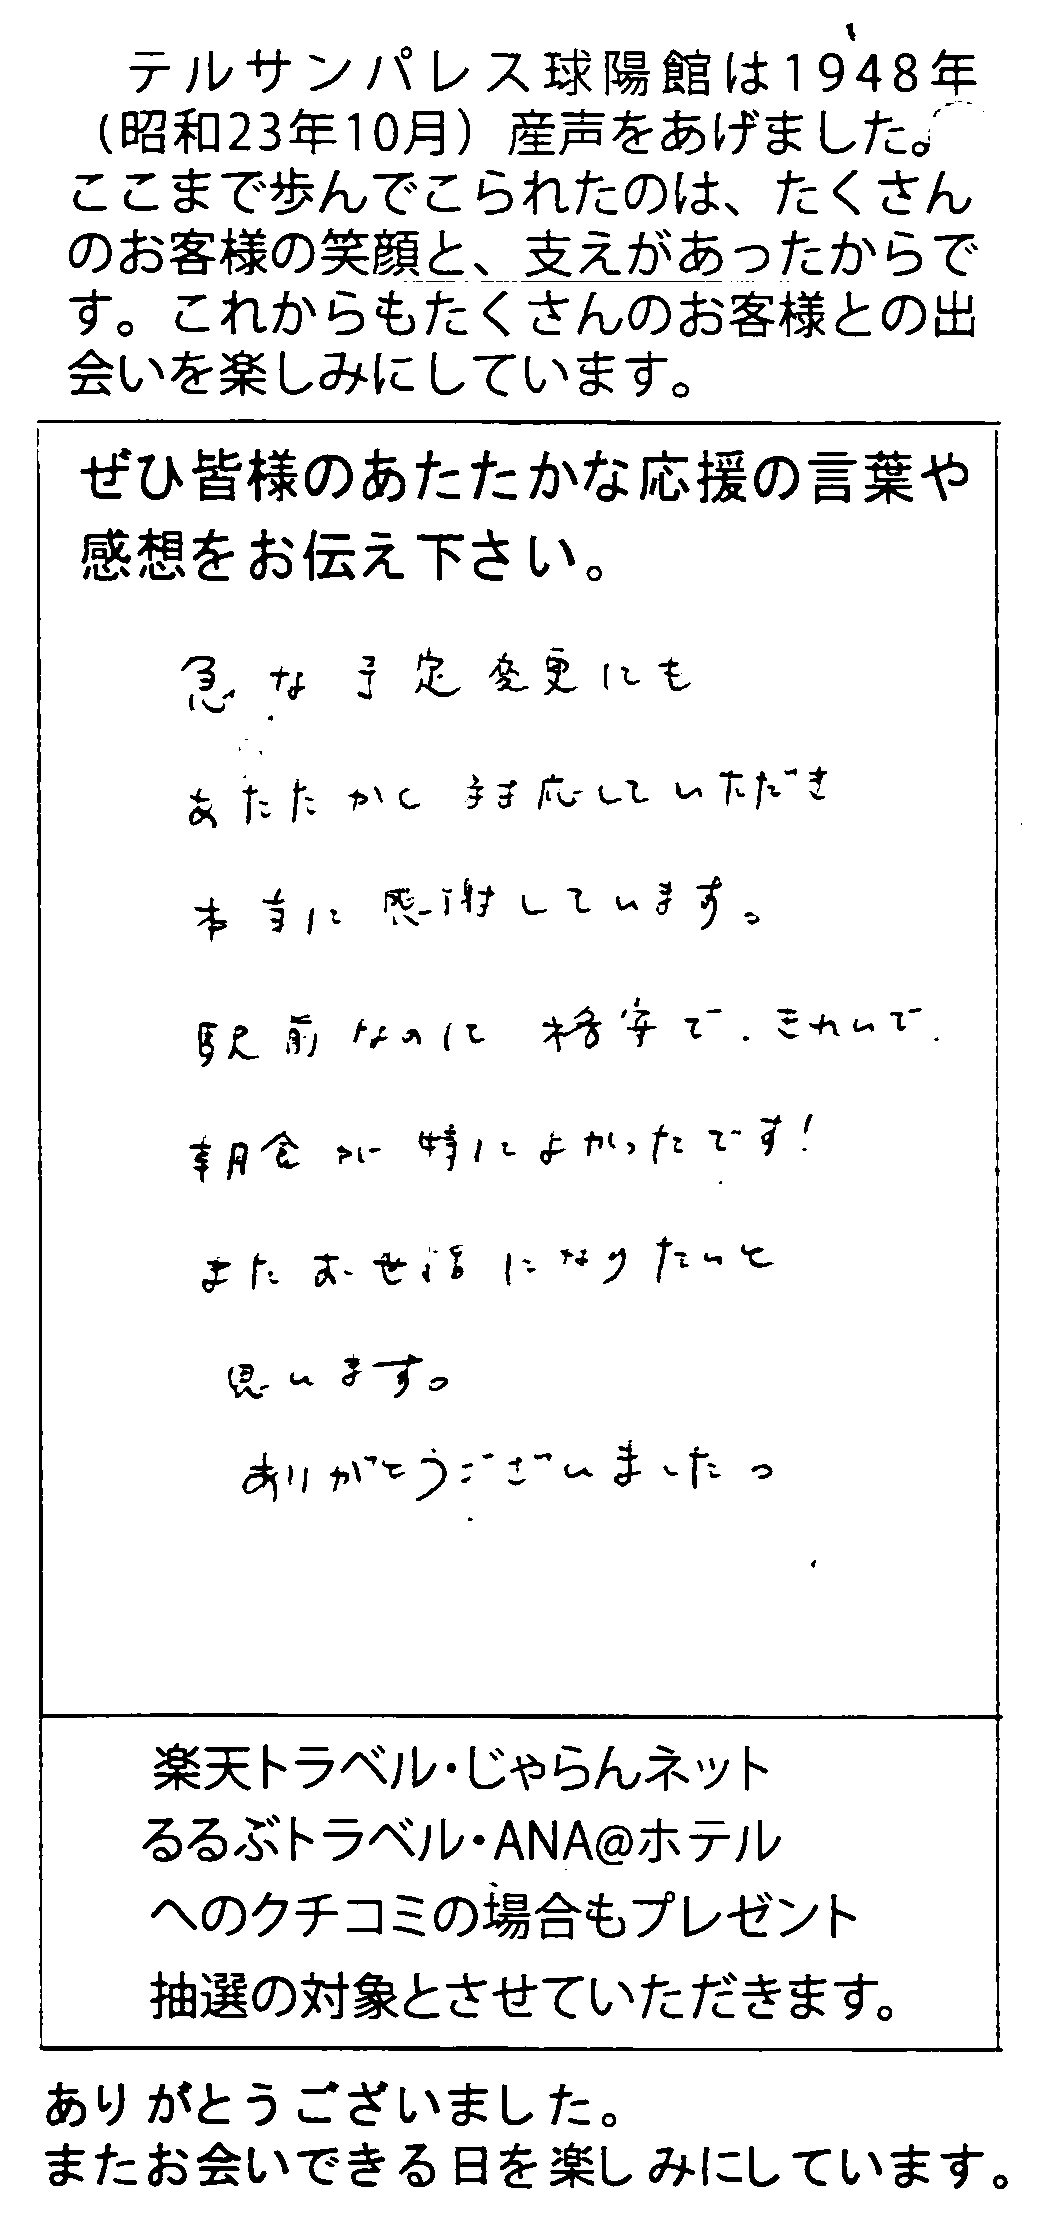 テルサンパレス球陽館は1948年
(昭和23年10月)産声をあげました。
ここまで歩んでこられたのは、たくさん
のお客様の笑顔と、支えがあったからで
す。これからもたくさんのお客様との出
会いを楽しみにしています。
ぜひ皆様のあたたかな応援の言葉や
感想をお伝え下さい。
急な予定変更にも
あたたかく対応していただき
本当に感謝しています。
駅前なのに格安で、きれいで、
朝食が特によかったです!
またお世話になりたいと
思います。
ありがとうございました。
楽天トラベル・じゃらんネット
るるぶトラベル・ANA@ホテル
へのクチコミの場合もプレゼント
抽選の対象とさせていただきます。
ありがとうございました。
またお会いできる日を楽しみにしています。